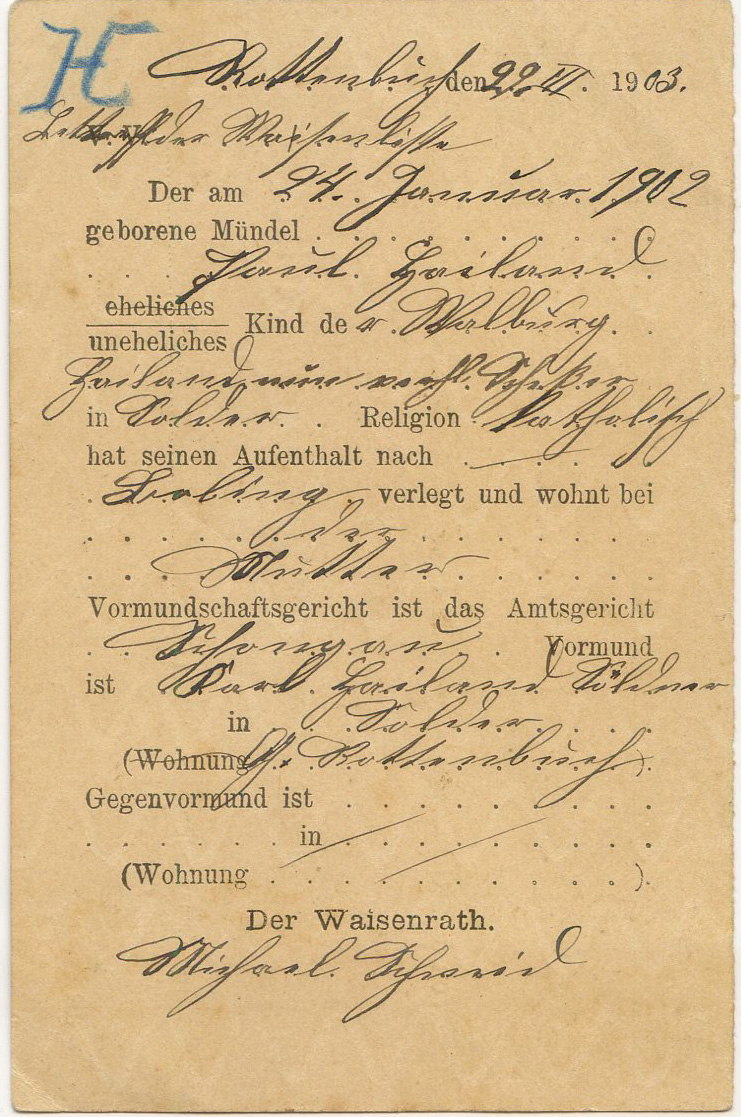 H
Rottenbuch den 22. VI. 1903.
der Waisenliste
Der am 24. Januar 1902
geborene Mündel
Paul Hailand
eheliches
uneheliches Kind der Walburg
Hailand, nun verhl.
in Solder. Religion katholisch
hat seinen Aufenthalt nach
verlegt und wohnt bei
der
Mutter
Vormundschaftsgericht ist das Amtsgericht
Schongau. Vormund
ist Karl Hailand Söldner
in Solder
(Wohnung G. Rottenbuch).
Gegenvormund ist
in
(Wohnung ).
Der Waisenrath.
Michael Schmid